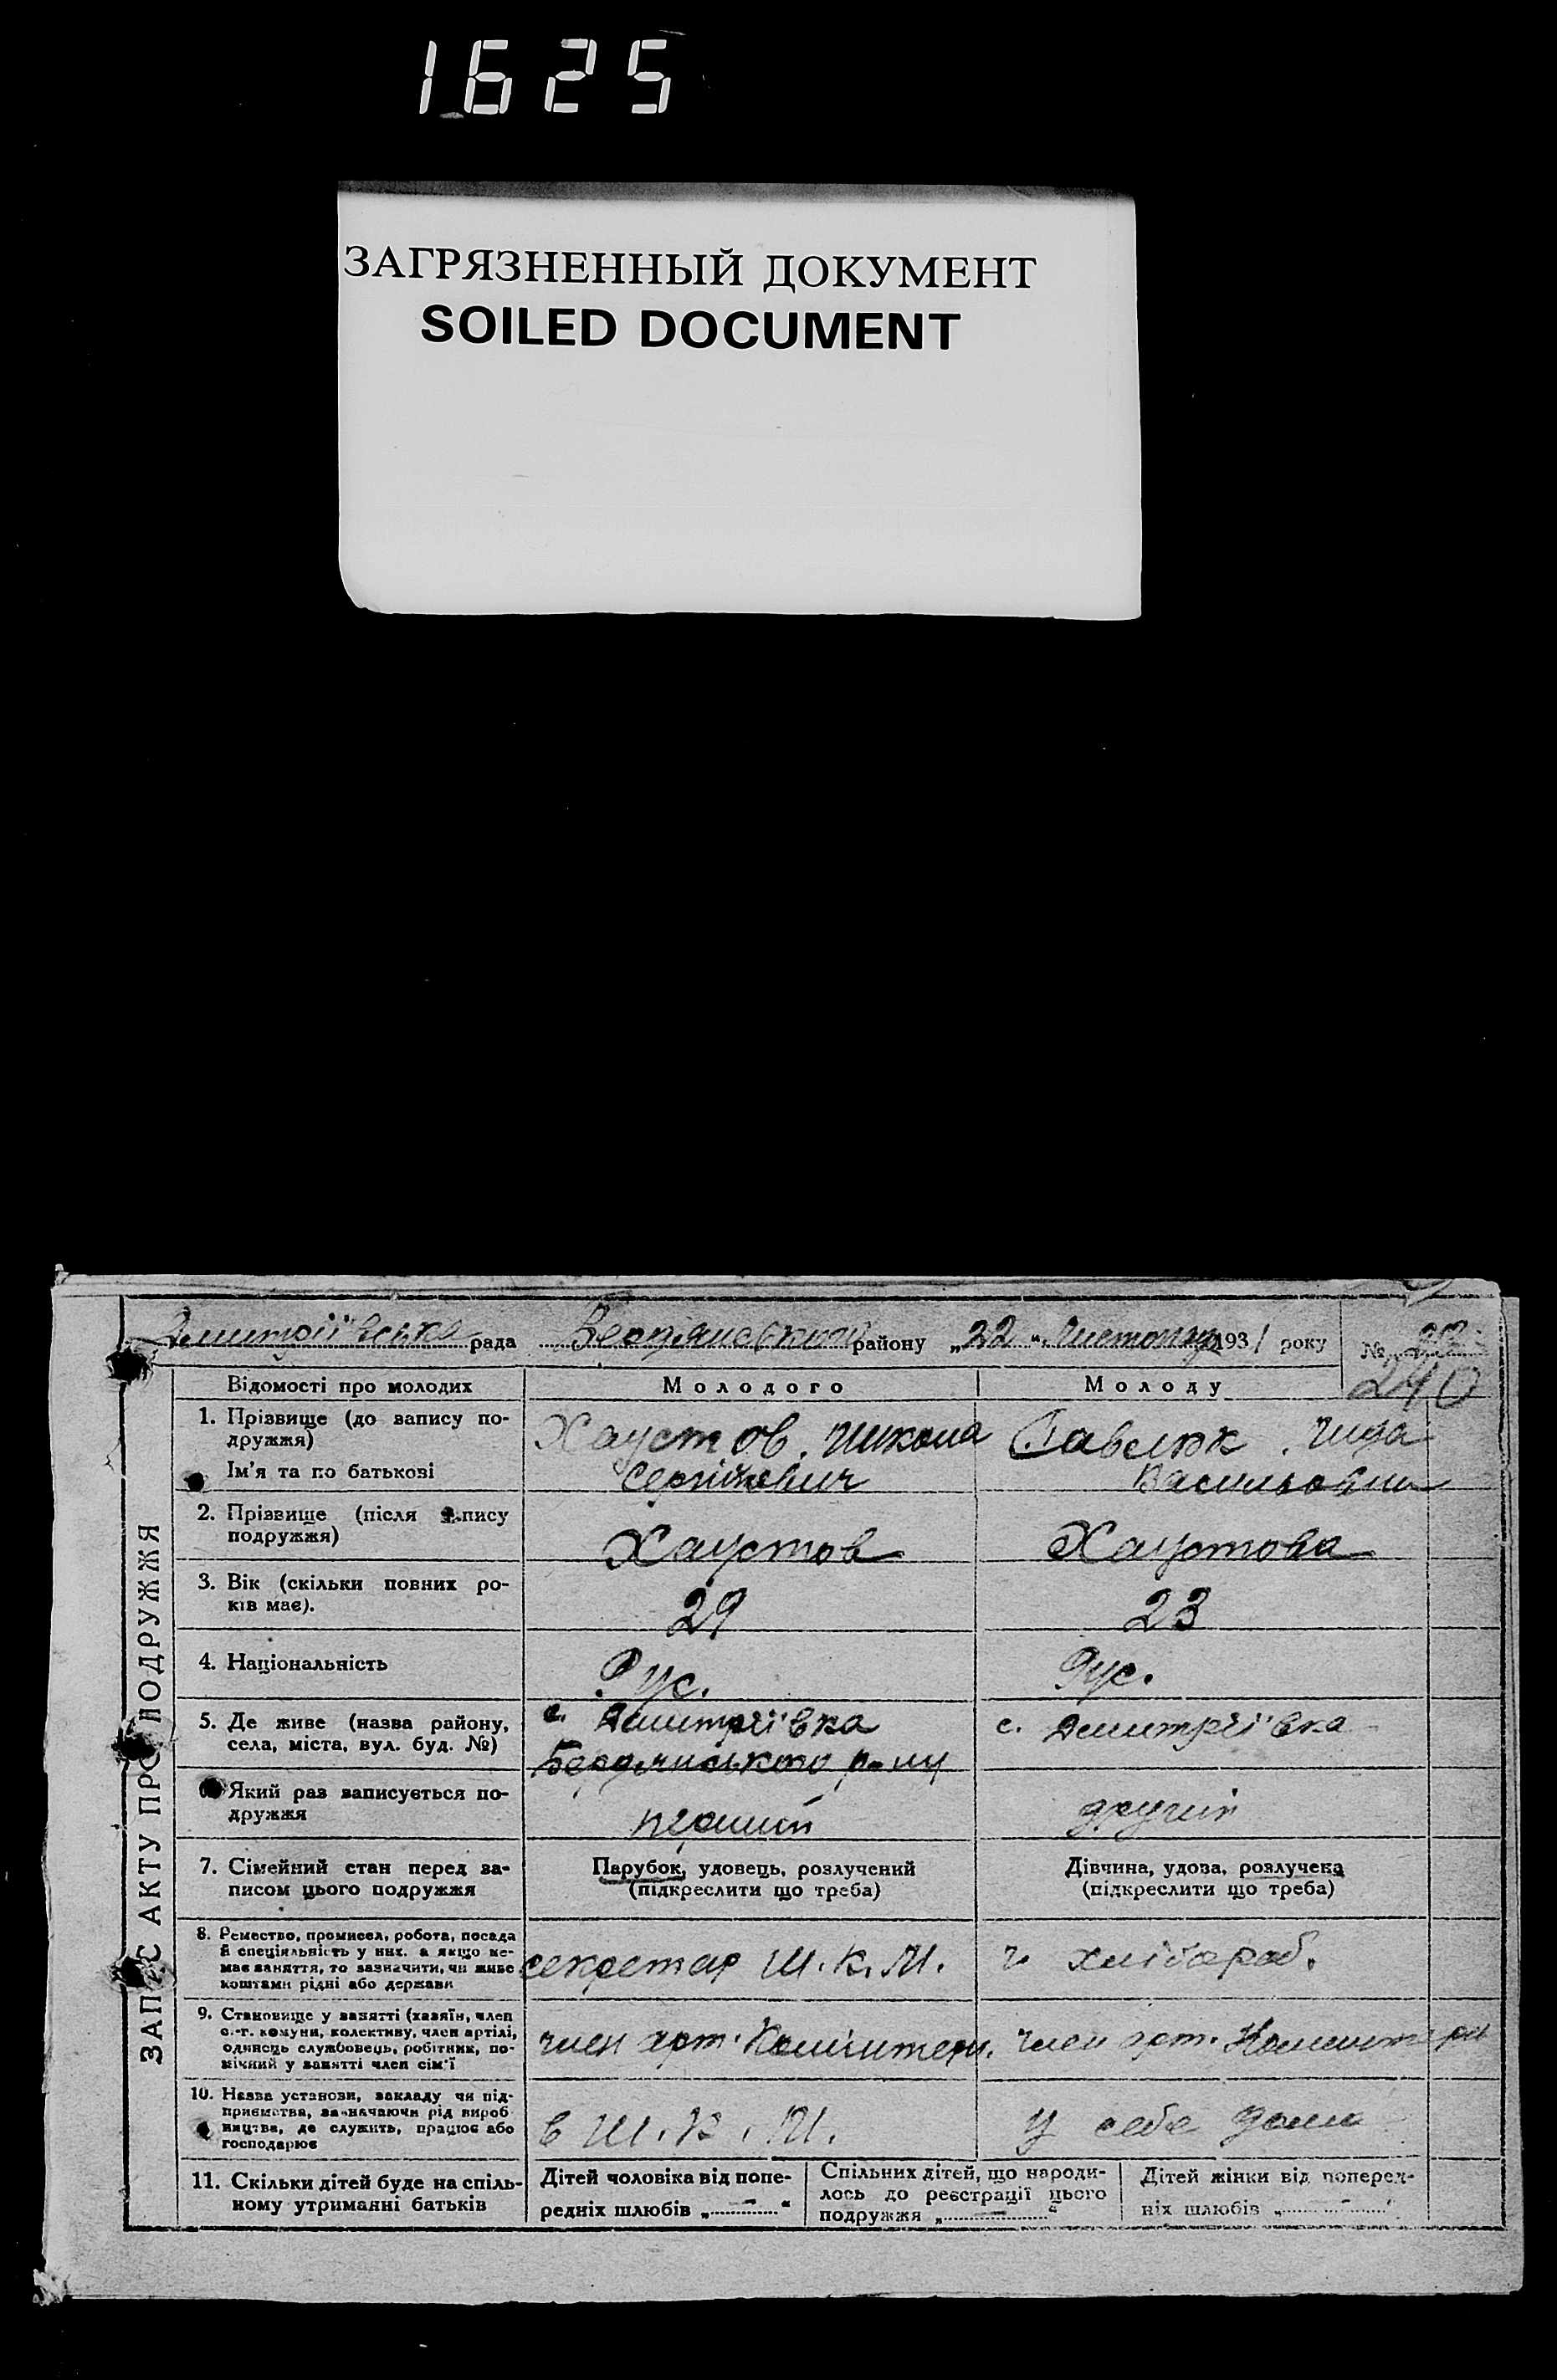 1625
ЗАГРЯЗНЕННЫЙ ДОКУМЕНТ
SOILED DOCUMENT
Дмитріївська рада Бердянського району „22 “ Листопад 1931 року №
240
ЗАПИС АКТУ ПРО ПОДРУЖЖЯ
Відомості про молодих
Молодого
Молоду
1. Прізвище (до запису по-
дружжя)
Ім'я та по батькові
Хаустов. Микола
Сергійович
Павелюк.
Васильовна
2. Прізвище (після запису
подружжя)
Хаустов
Хаустова
3. Вік (скільки повних ро-
ків має).
29
23
4. Національність
Рус.
Рус.
5. Де живе (назва району,
села, міста, вул. буд. №)
с. Дмитріївка
Бердянського р-ну
с. Дмитріївка
Який раз записується по-
дружжя
перший
другий
7. Сімейний стан перед за-
писом цього подружжя
Парубок, удовець, розлучений
(підкреслити що треба)
Дівчина, удова, розлучена
(підкреслити що треба)
8. Ремество, промисел, робота, посада
й спеціяльність у них. а якщо не-
має заняття, то зазначити, чи живе
коштами рідні або держави
секретар Ш.К.М.
хлібороб.
9. Становище у занятті (хазяїн, член
с.-г. комуни, колективу, член артілі,
одинець службовець, робітник, по-
мічний у занятті член сім'ї
член арт. Комінтерн.
член арт. Комінтерн
10. Назва установи, закладу чи під-
приємства, зазначаючи рід вироб
ництва, де служить, працює або
господарює
в Ш.К.М.
у себе дома
11. Скільки дітей буде на спіль-
ному утриманні батьків
Дітей чоловіка від попе-
редніх шлюбів „ — “
Спільних дітей, що народи-
лось до реєстрації цього
подружжя „ — “
Дітей жінки від поперед-
ніх шлюбів „ — “